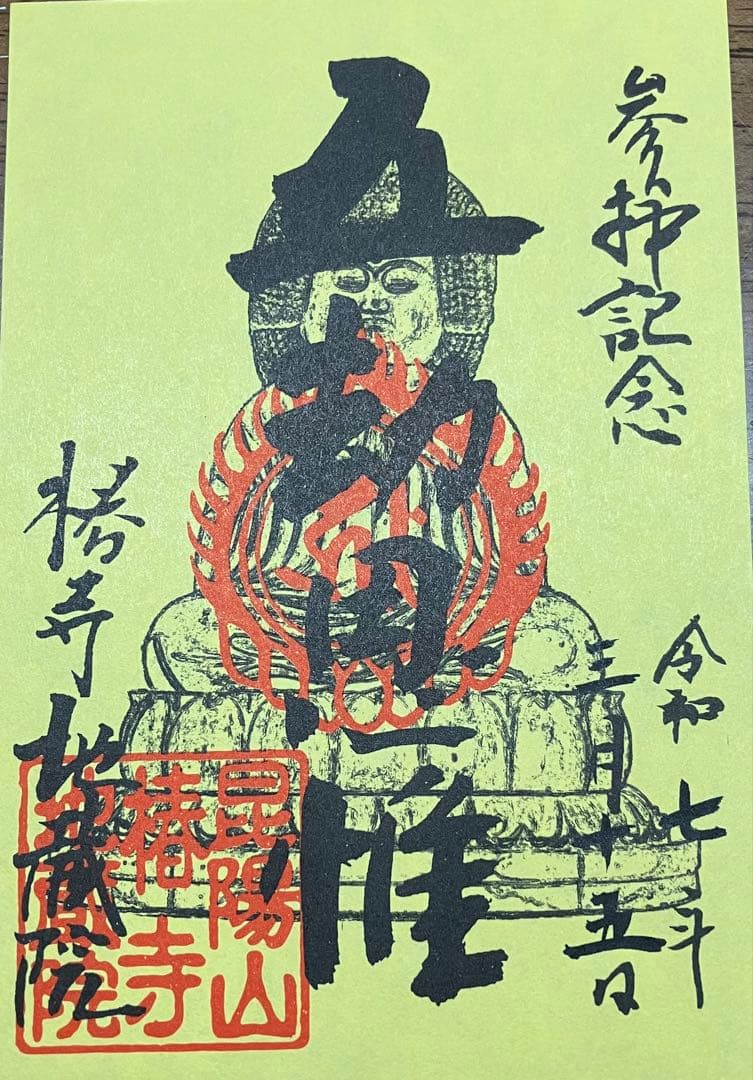 参拝記念
令和七年
三月十五日
五劫思惟
椿寺地蔵院
昆陽山
椿寺
地蔵院